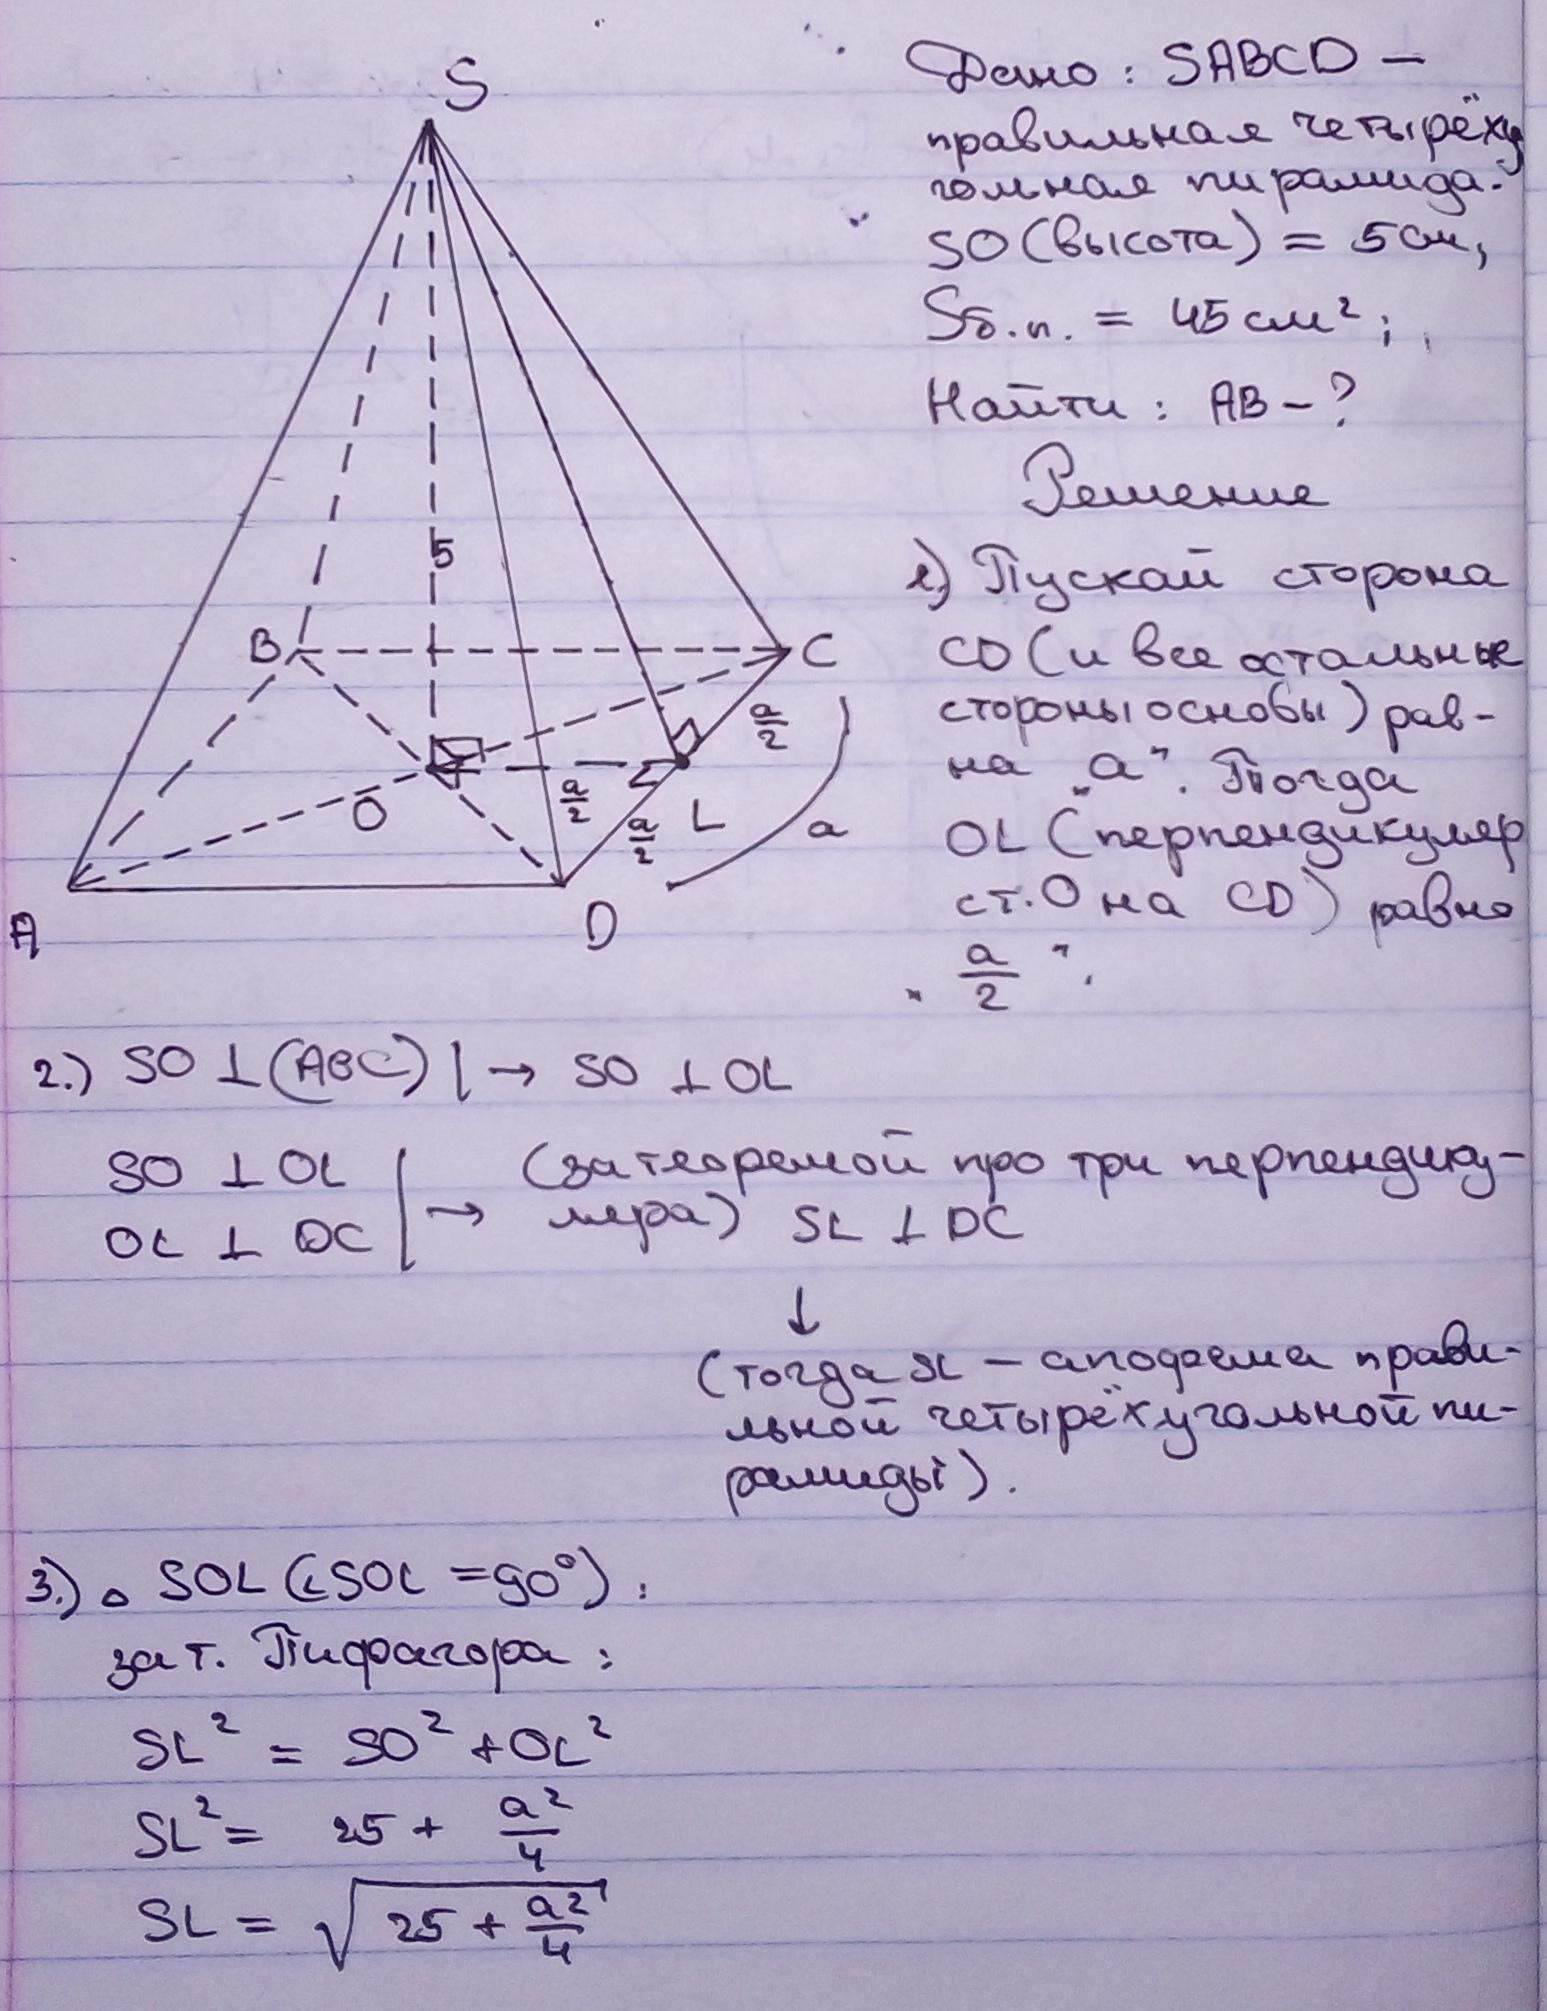 S
Дано: SABCD –
правильная четырёху
гольная пирамида.
SO (высота) = 5 см,
Sб.п. = 45 см²;
Найти: AB – ?
Решение
5
1.) Пускай сторона
B
C
CD (и все остальные
стороны основы) рав-
a/2
на „a”. Тогда
O
a/2
a/2
L
a
OL (перпендикуляр
с т. O на CD) равно
A
D
„ a/2 ”.
2.) SO ⊥ (ABC) | → SO ⊥ OL
SO ⊥ OL
OL ⊥ DC
→ (за теоремой про три перпендику-
ляра) SL ⊥ DC
↓
(тогда SL – апофема прави-
льной четырёхугольной пи-
рамиды).
3.) △ SOL (∠SOL = 90°):
за т. Пифагора:
SL² = SO² + OL²
SL² = 25 + a²/4
SL = √(25 + a²/4)